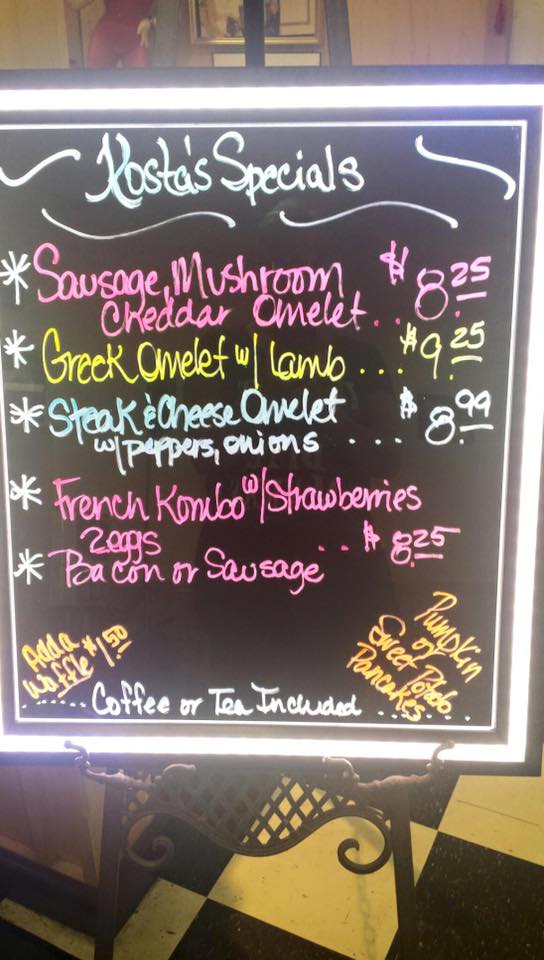 Kosta's Specials
* Sausage, Mushroom
Cheddar Omelet.. $8.25
* Greek Omelet w/ Lamb ... $9.25
* Steak & Cheese Omelet $8.99
w/ peppers, onions ....
* French Kombo w/ Strawberries
2eggs .. $8.25
* Bacon or Sausage
Add a
Waffle $1.50
Pumpkin
or
Sweet Potato
Pancakes
...... Coffee or Tea Included ........